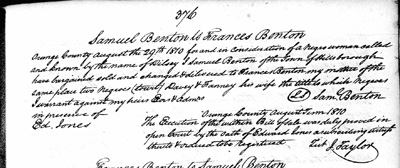 376
Samuel Benton to Frances Benton
Orange County August the 29th 1810 for and in consideration of a Negro woman called
and known by the name of Wilsey I Samuel Benton of the Town of Hillsborough
have bargained sold and exchanged & delivered to Frances Benton my mother of the
same place two Negroes (towit) Davey & Fanney his wife the title to which Negroes
I warrant against my heirs Exrs & Admrs
in presence of Saml Benton
Ed. Jones Orange County August Term 1810
The Execution of the within Bill of Sale was duly proved in
open Court by the oath of Edward Jones a subscribing witness
thereto & ordered to be registered Test J Taylor
Frances Benton to Samuel Benton